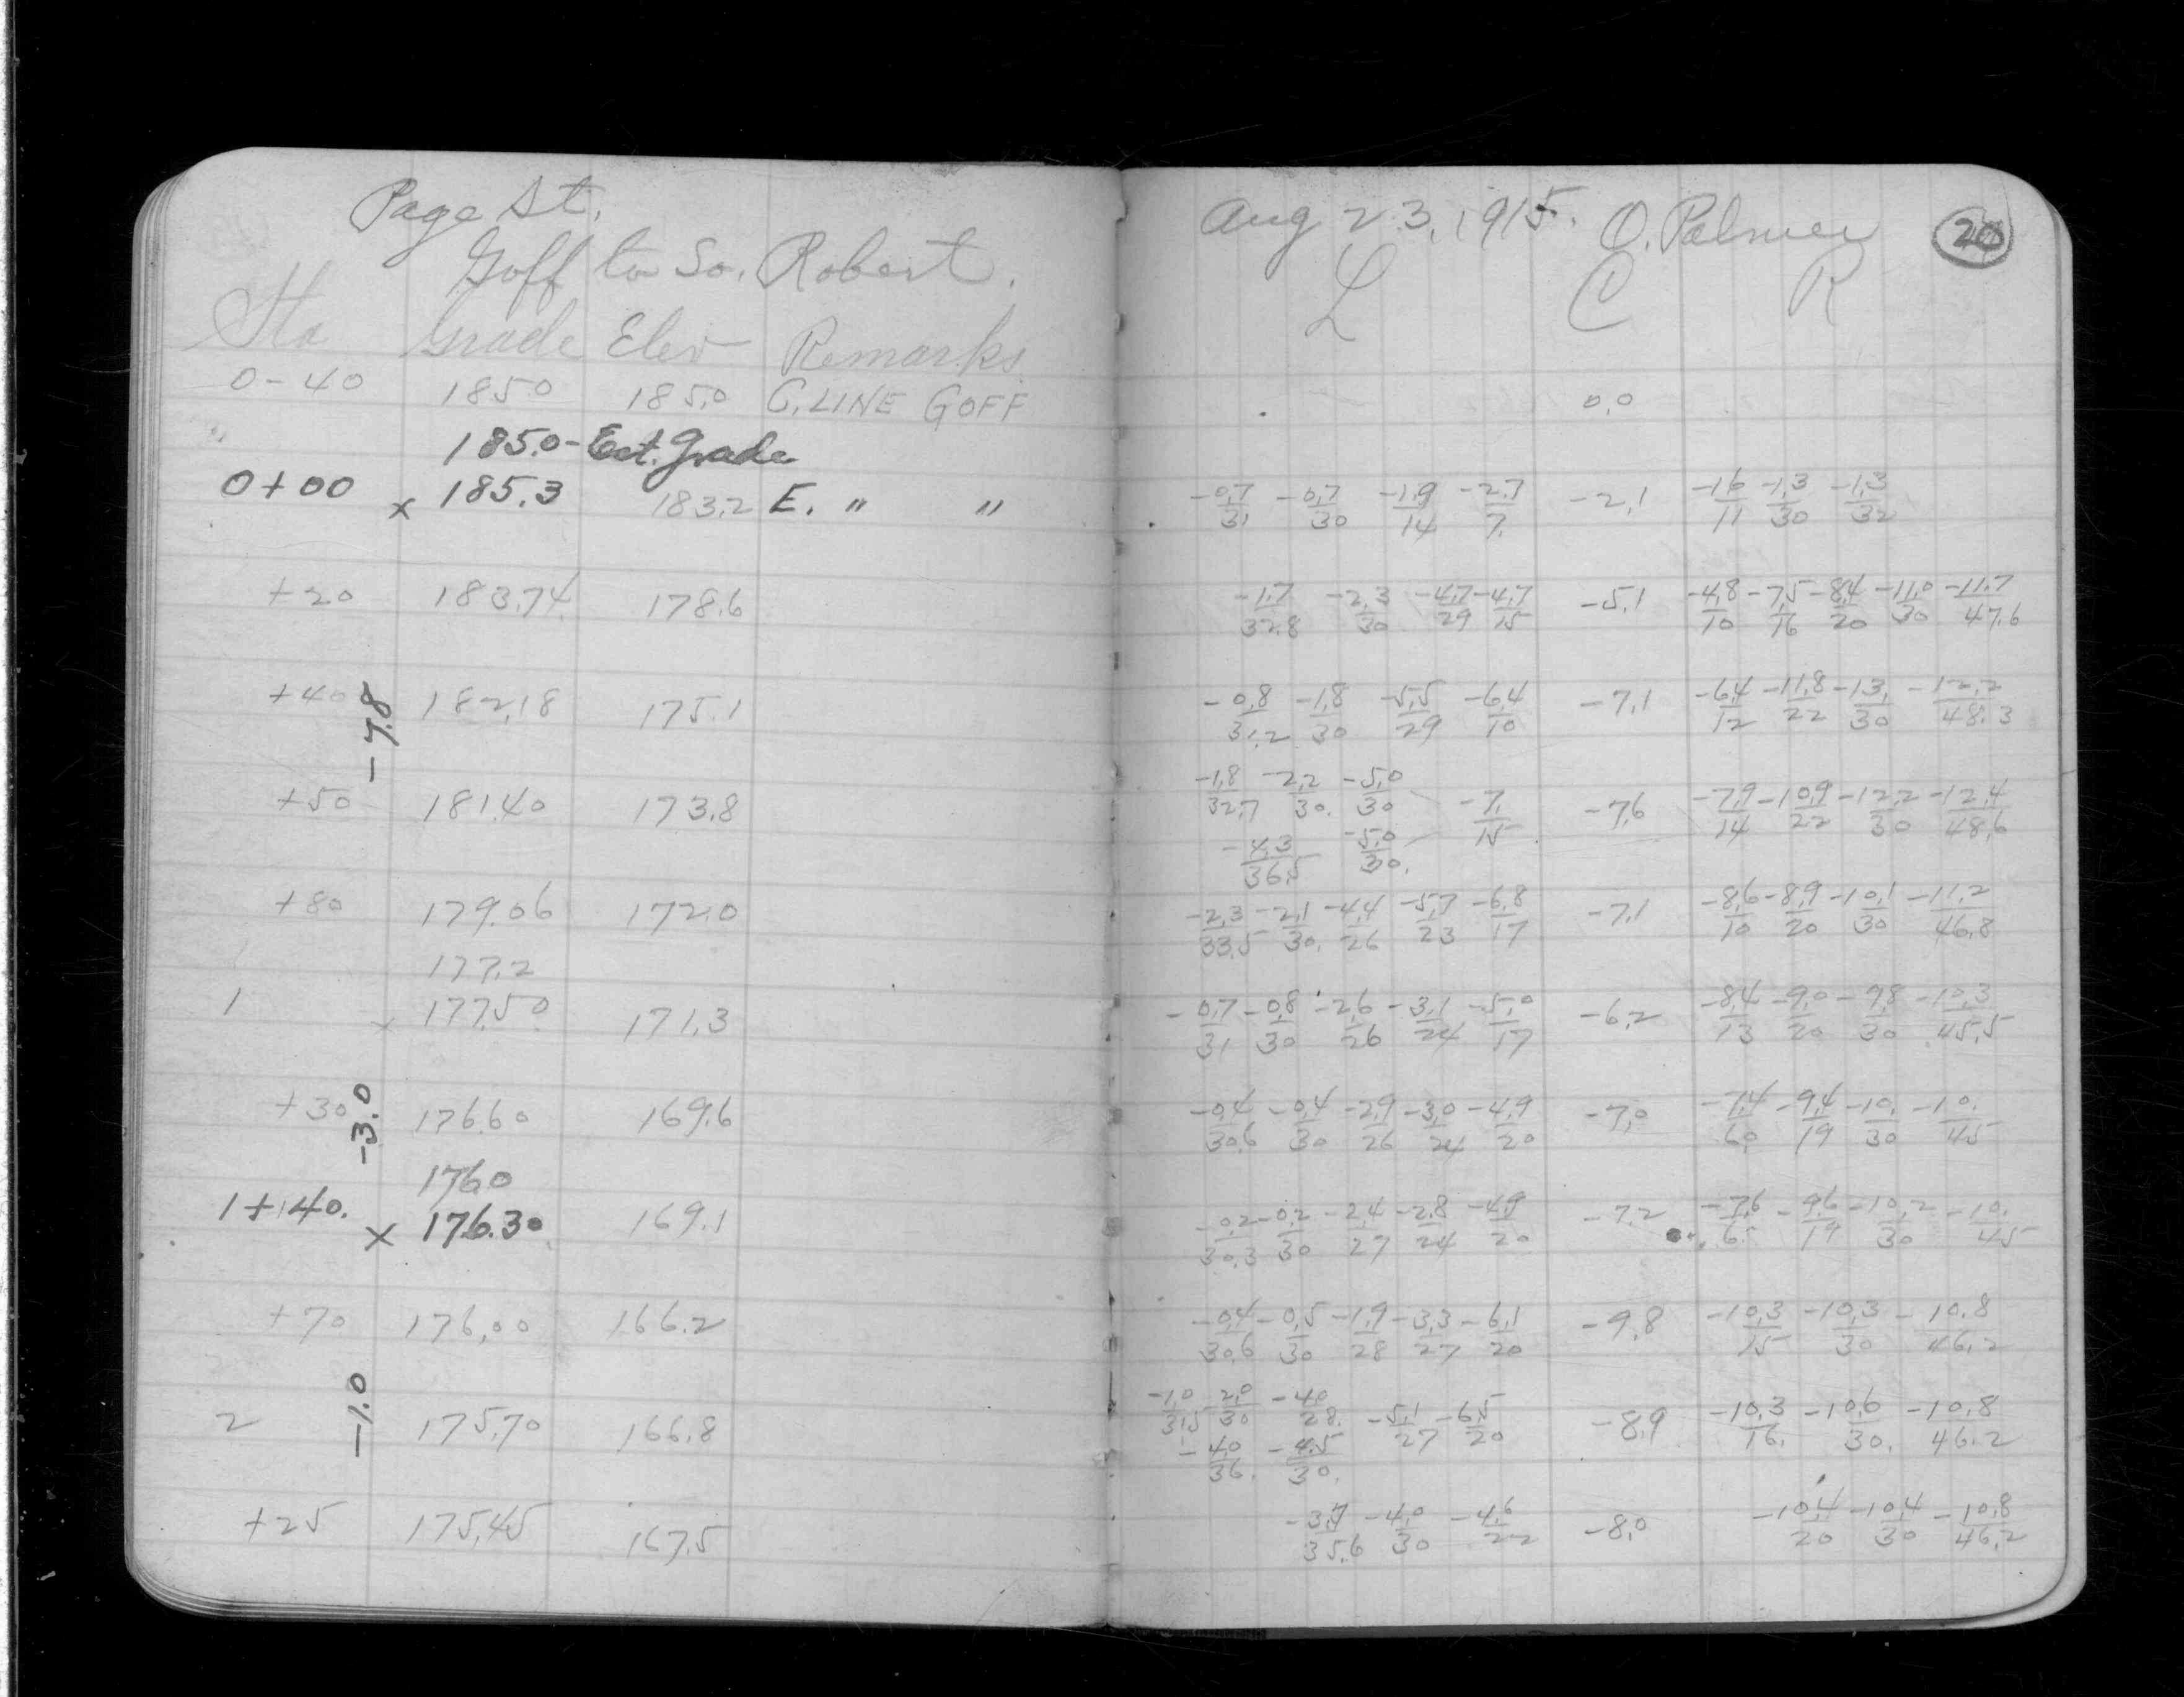 Page St.
Goff to So. Robert.
Sta Grade Elev Remarks
0-40 185.0 185.0 C. LINE GOFF
185.0 - Est. Grade
0+00 x 185.3 183.2 E. " "
+20 183.74 178.6
+40 182.18 175.1
-7.8
+50 181.40 173.8
+80 179.06 172.0
177.2
1 x 177.50 171.3
+30 176.60 169.6
-3.0
176.0
1+40. x 176.30 169.1
+70 176.00 166.2
-1.0
2 175.70 166.8
+25 175.45 167.5
Aug 23, 1915. O. Palmer 20
L C R
0.0
-0.7/31 -0.7/30 -1.9/14 -2.7/7. -2.1 -1.6/11 -1.3/30 -1.3/32
-1.7/32.8 -2.3/30 -4.7/29 -4.7/15 -5.1 -4.8/10 -7.5/16 -8.4/20 -11.0/30 -11.7/47.6
-0.8/31.2 -1.8/30 -5.5/29 -6.4/10 -7.1 -6.4/12 -11.8/22 -13./30 -12.2/48.3
-1.8/32.7 -2.2/30. -5.0/30 -7./15 -7.6 -7.9/14 -10.9/22 -12.2/30 -12.4/48.6
-4.3/36.5 -5.0/30.
-2.3/33.5 -2.1/30. -4.4/26 -5.7/23 -6.8/17 -7.1 -8.6/10 -8.9/20 -10.1/30 -11.2/46.8
-0.7/31 -0.8/30 -2.6/26 -3.1/24 -5.0/17 -6.2 -8.4/13 -9.0/20 -9.8/30 -10.3/45.5
-0.4/30.6 -0.4/30 -2.9/26 -3.0/24 -4.9/20 -7.0 -7.4/6.0 -9.4/19 -10./30 -10./45
-0.2/30.3 -0.2/30 -2.4/27 -2.8/24 -4.9/20 -7.2 -7.6/6 -9.6/19 -10.2/30 -10./45
-0.4/30.6 -0.5/30 -1.9/28 -3.3/27 -6.1/20 -9.8 -10.3/15 -10.3/30 -10.8/46.2
-1.0/31.5 -2.0/30 -4.0/28. -5.1/27 -6.5/20 -8.9 -10.3/16. -10.6/30. -10.8/46.2
-4.0/36. -4.5/30.
-3.7/35.6 -4.0/30 -4.6/22 -8.0 -10.4/20 -10.4/30 -10.8/46.2